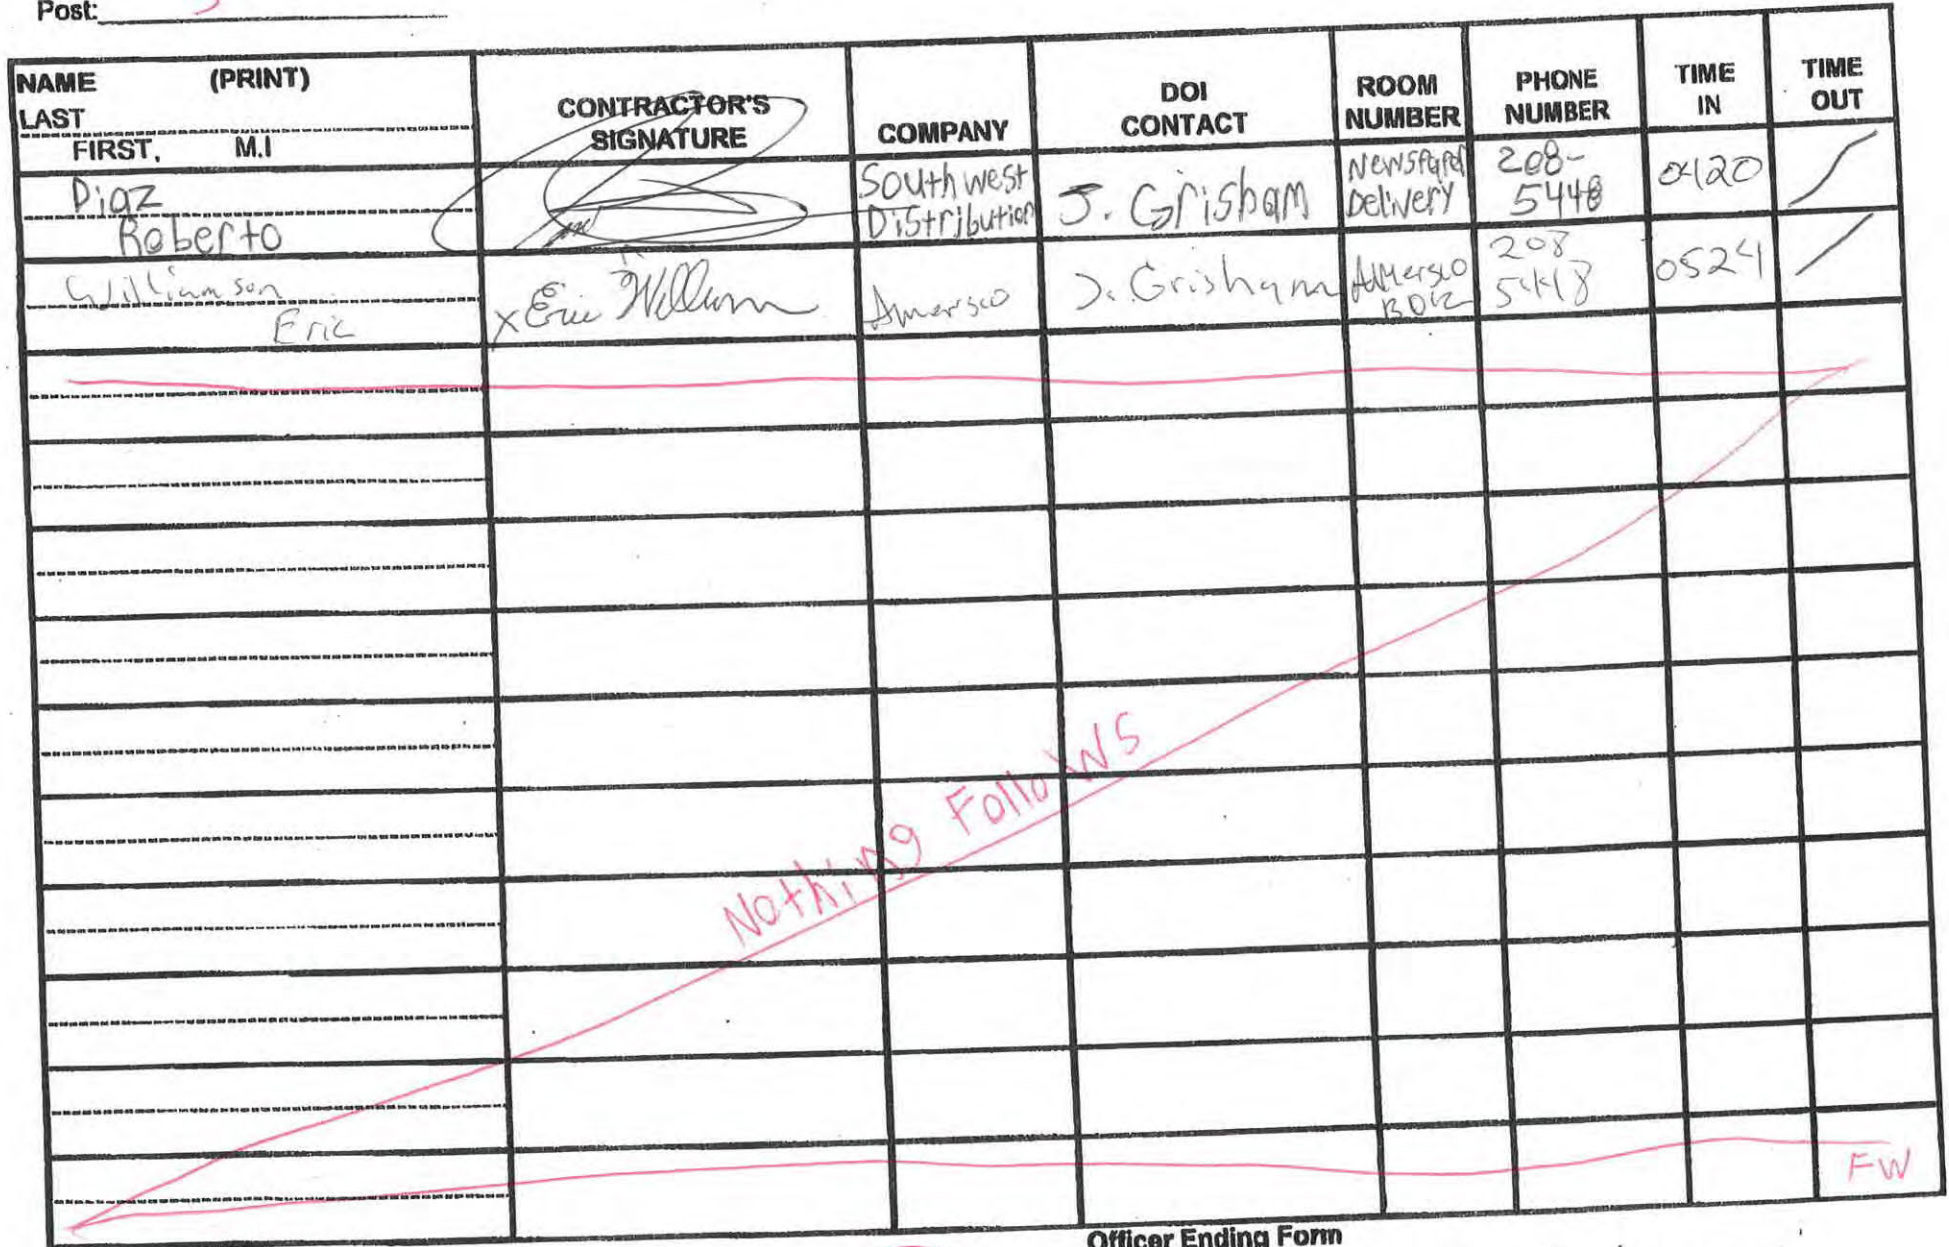 Post:
NAME (PRINT)
LAST
FIRST, M.I
CONTRACTOR'S
SIGNATURE
COMPANY
DOI
CONTACT
ROOM
NUMBER
PHONE
NUMBER
TIME
IN
TIME
OUT
Diaz
Roberto
Southwest
Distribution
J. Grisham
Delivery
208-
5448
0420
Williamson
Eric
x Eric
J. Grisham
208
0524
Nothing Follows
FW
Officer Ending Form